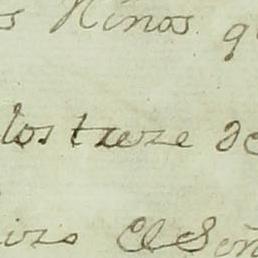 s Ninos q
los treze de
El Señ